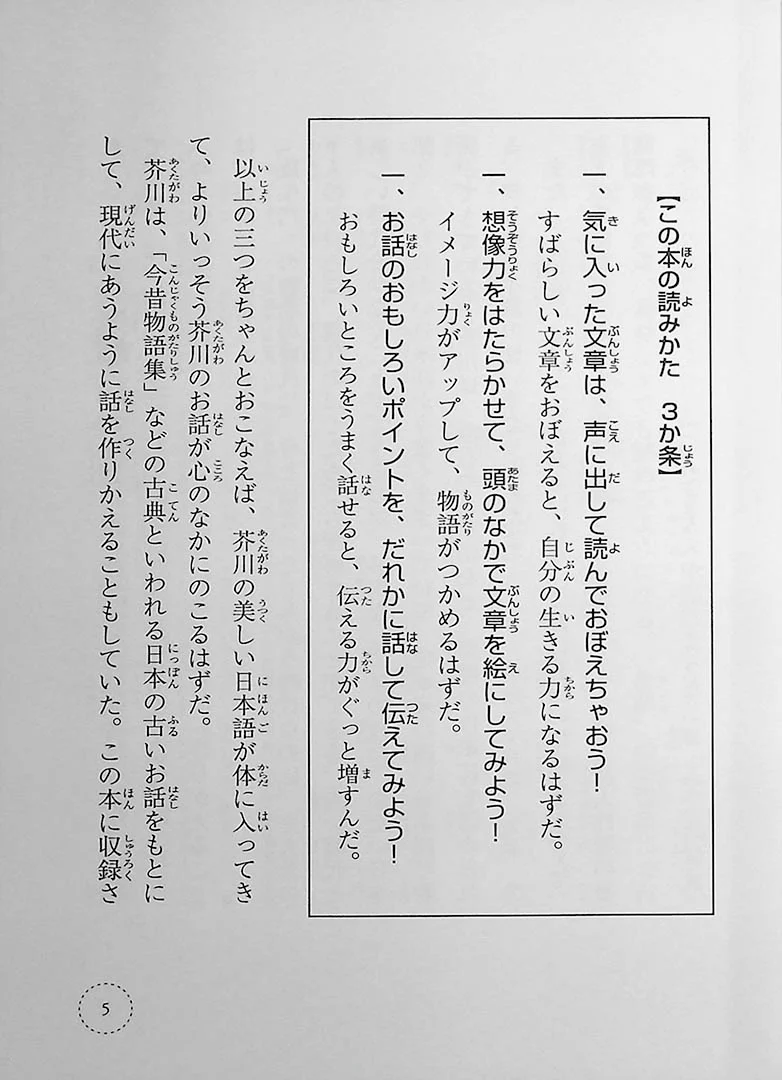 【この本の読みかた　３か条】
一、気に入った文章は、声に出して読んでおぼえちゃおう！
すばらしい文章をおぼえると、自分の生きる力になるはずだ。
一、想像力をはたらかせて、頭のなかで文章を絵にしてみよう！
イメージ力がアップして、物語がつかめるはずだ。
一、お話のおもしろいポイントを、だれかに話して伝えてみよう！
おもしろいところをうまく話せると、伝える力がぐっと増すんだ。
以上の三つをちゃんとおこなえば、芥川の美しい日本語が体に入ってき
て、よりいっそう芥川のお話が心のなかにのこるはずだ。
芥川は、「今昔物語集」などの古典といわれる日本の古いお話をもとに
して、現代にあうように話を作りかえることもしていた。この本に収録さ
5